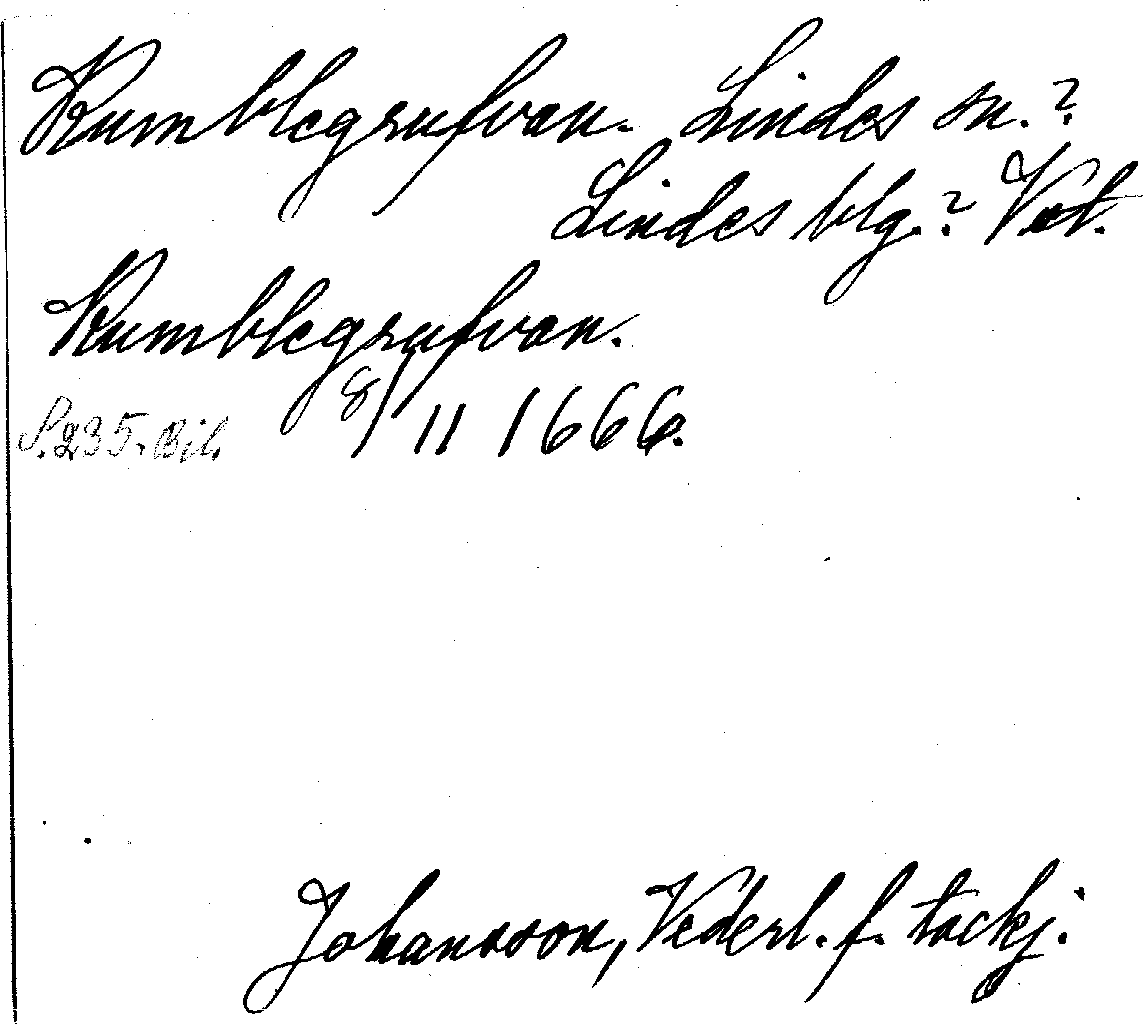 Kumblegrufvan. Lindes sn.?
Lindes blg.? Vst.
Kumblegrufvan.
8/11 1666.
S. 235. Bil.
Johansson, Vederl. f. tackj.